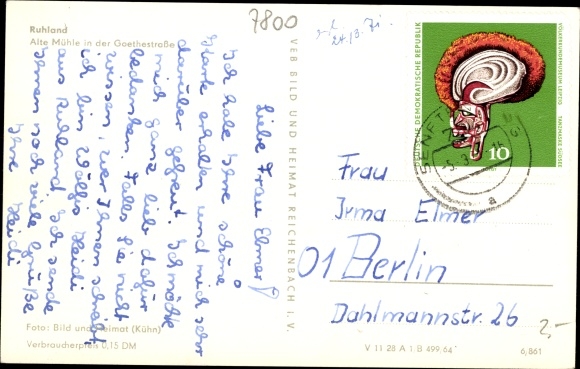 7800
Ruhland
Alte Mühle in der Goethestraße
Liebe Frau Elmer!
Ich habe Ihre schöne
Karte erhalten und mich sehr
darüber gefreut. Ich möchte
mich ganz lieb dafür
bedanken. Falls Sie nicht
wissen, wer Ihnen schreibt,
ich bin Wölffs Heidi
aus Ruhland. Ich sende
Ihnen noch viele Grüße
Ihre Heidi
Foto: Bild und Heimat (Kühn)
Verbraucherpreis 0,15 DM
VEB BILD UND HEIMAT REICHENBACH I. V.
DEUTSCHE DEMOKRATISCHE REPUBLIK
VÖLKERKUNDEMUSEUM LEIPZIG
TANZMASKE SÜDSEE
10
SENFT
a
Frau
Irma Elmer
01 Berlin
Dahlmannstr. 26
2,-
V 11 28 A 1 B 499/64
6/861